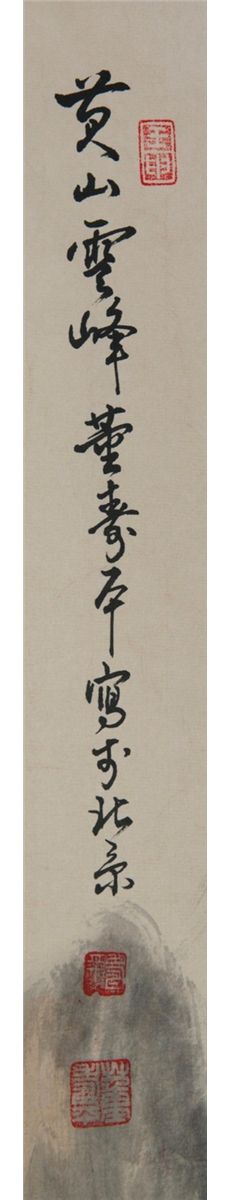 黄山雲峰董壽平寫於北京